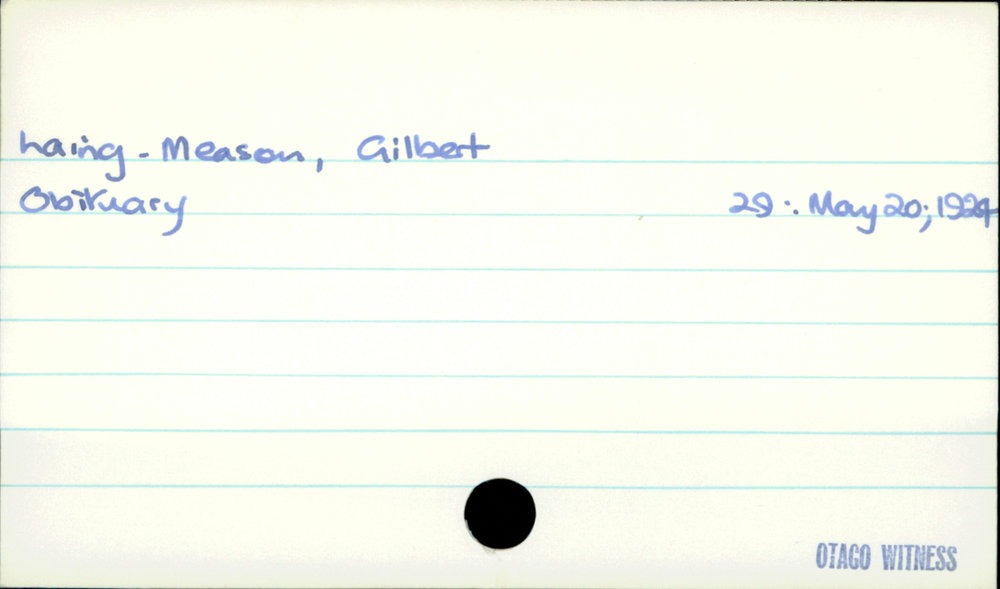 Laing-Meason, Gilbert
Obituary 29: May 20; 1924
OTAGO WITNESS